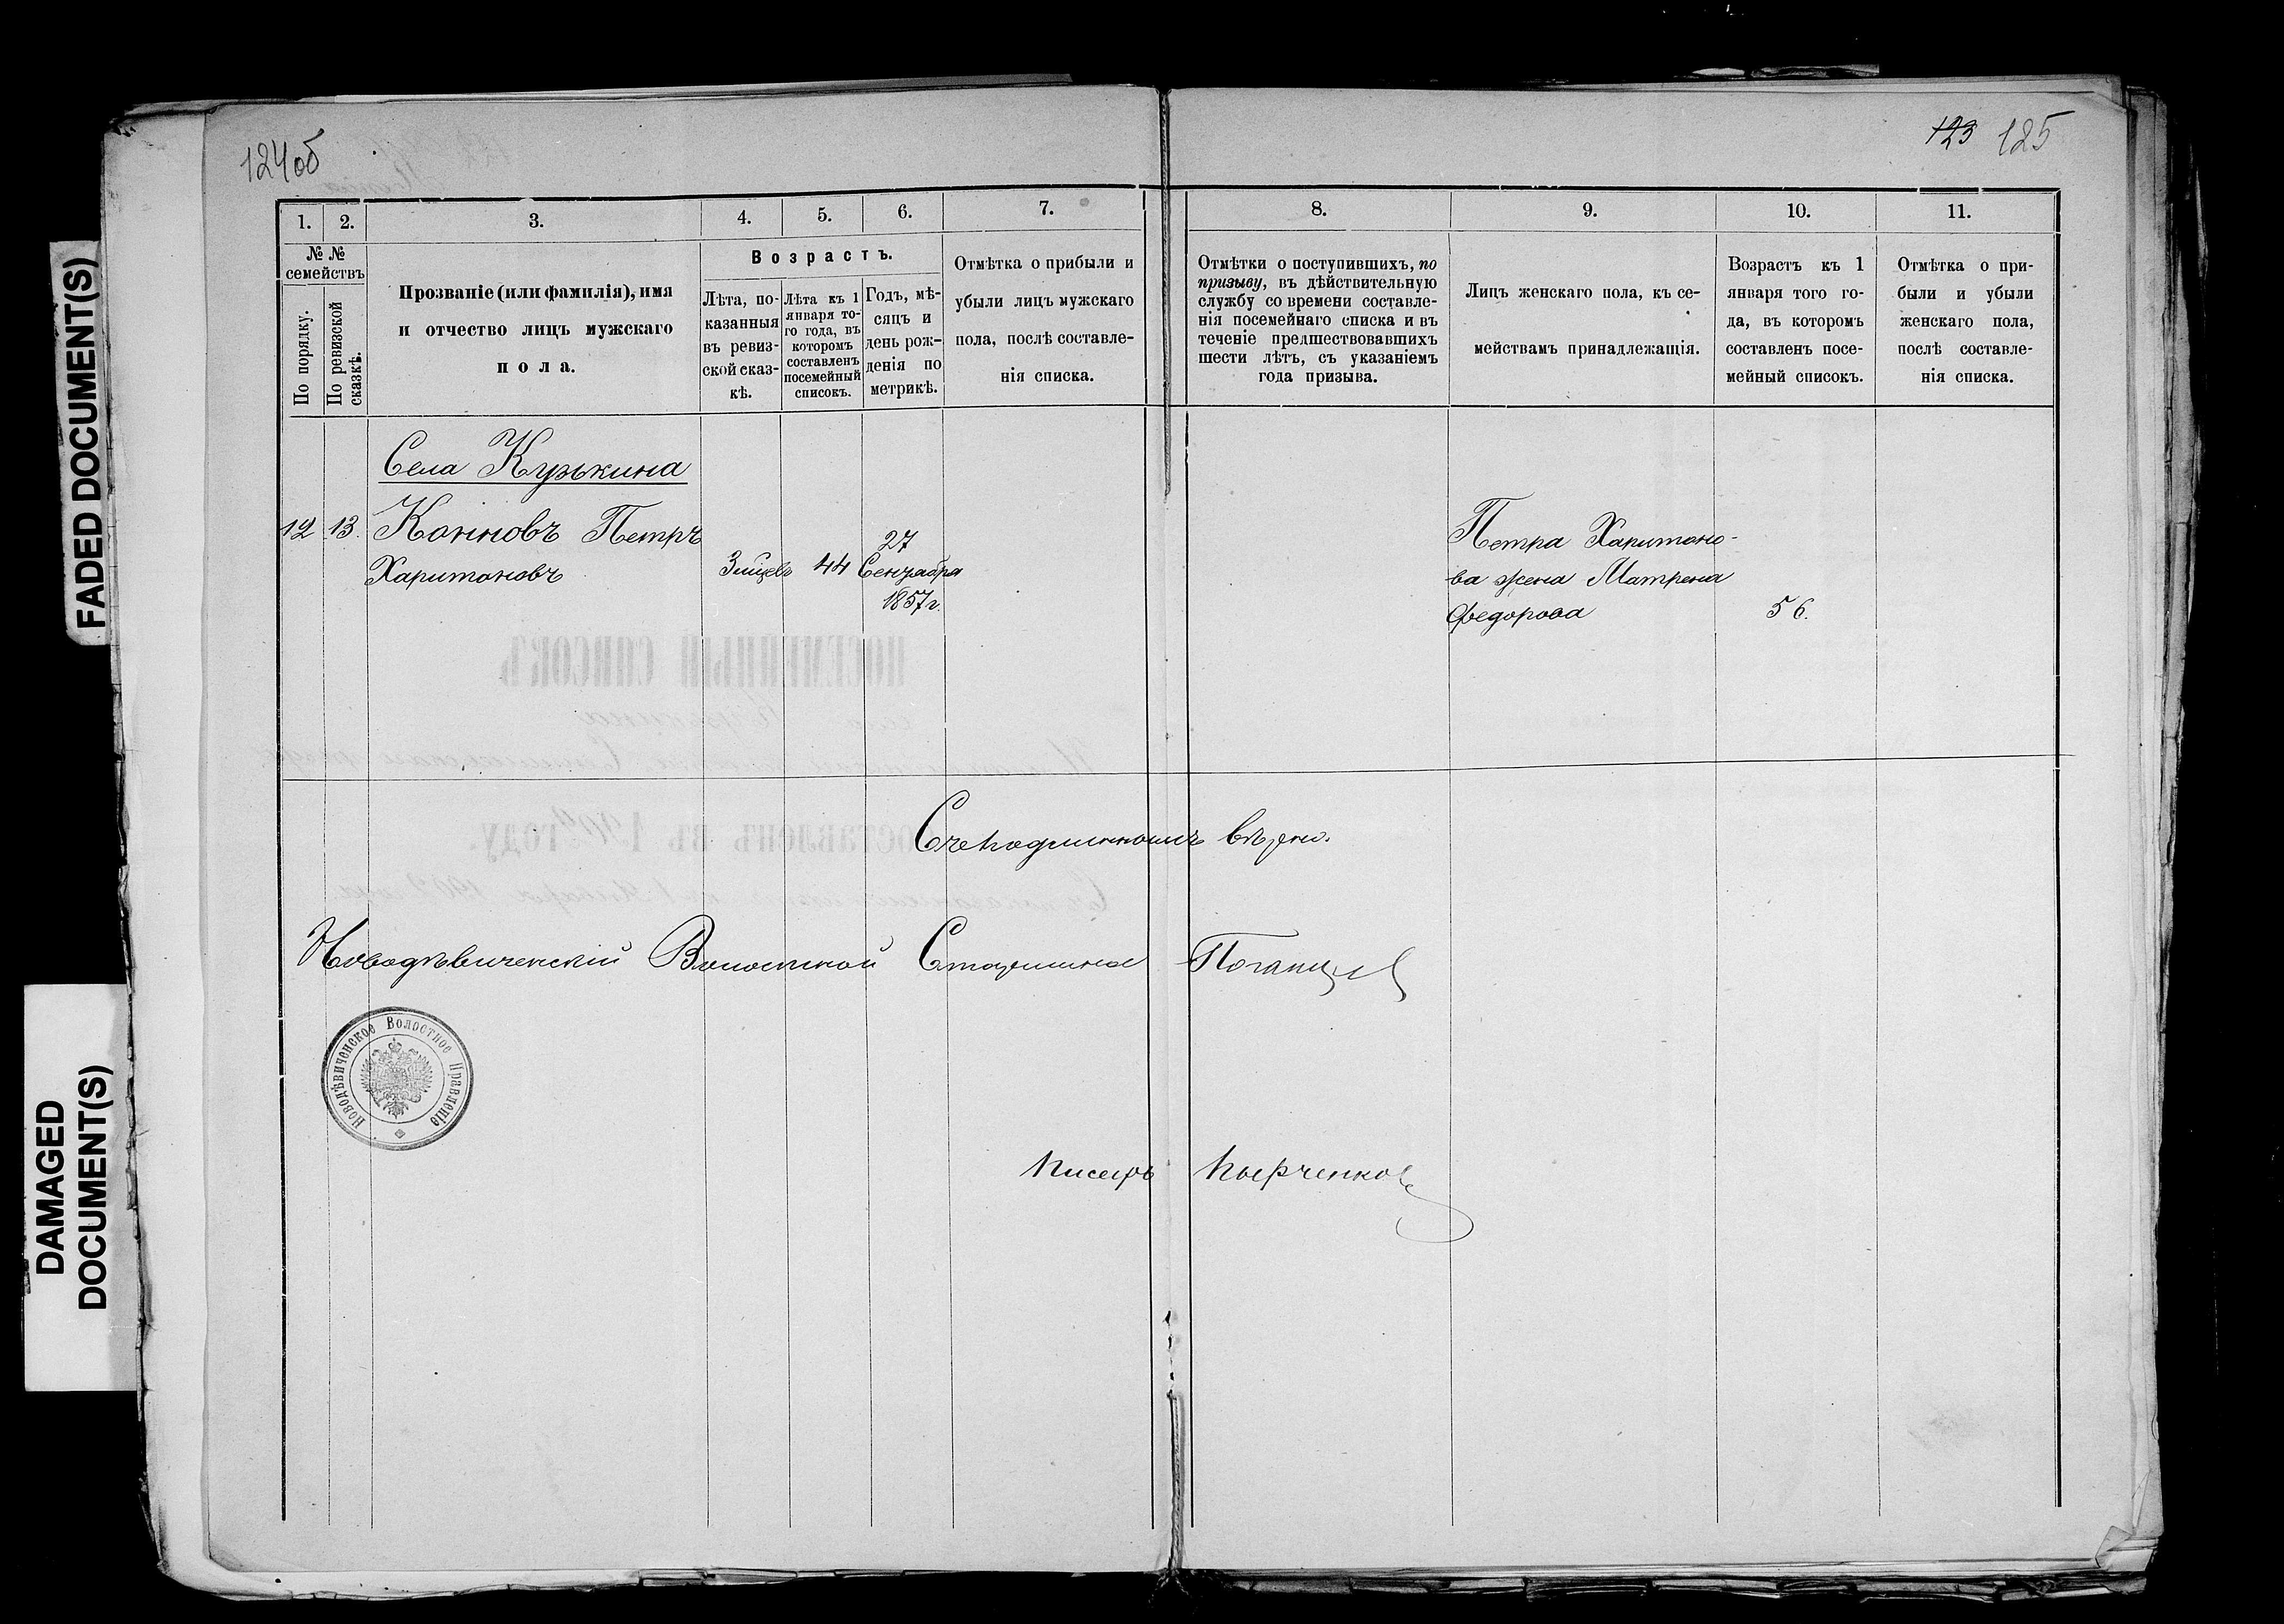 FADED DOCUMENT(S)
DAMAGED
DOCUMENT(S)
124об
123 125
1. 2. 3. 4. 5. 6. 7. 8. 9. 10. 11.
№ №
семействъ
По порядку.
По ревизской
сказкѣ.
Прозваніе (или фамилія), имя
и отчество лицъ мужскаго
пола.
Возрастъ.
Лѣта, по-
казанныя
въ ревиз-
ской сказ-
кѣ.
Лѣта къ 1
января то-
го года, въ
которомъ
составленъ
посемейный
списокъ.
Годъ, мѣ-
сяцъ и
день рож-
денія по
метрикѣ.
Отмѣтка о прибыли и
убыли лицъ мужскаго
пола, послѣ составле-
нія списка.
Отмѣтки о поступившихъ, по
призыву, въ дѣйствительную
службу со времени составле-
нія посемейнаго списка и въ
теченіе предшествовавшихъ
шести лѣтъ, съ указаніемъ
года призыва.
Лицъ женскаго пола, къ се-
мействамъ принадлежащія.
Возрастъ къ 1
января того го-
да, въ которомъ
составленъ посе-
мейный списокъ.
Отмѣтка о при-
были и убыли
женскаго пола,
послѣ составле-
нія списка.
Села Кузькина
12 13. Петръ
Харитоновъ
44
27
Сентября
1857 г.
Петра Харитоно-
ва жена Матрена
Федорова 56.
Съ подлиннымъ вѣрно.
Новодѣвиченскій Волостной Старшина
Новодѣвиченское Волостное Правленіе
Писарь
ПОСЕМЕЙНЫЙ СПИСОКЪ
Составленъ въ 190 году.